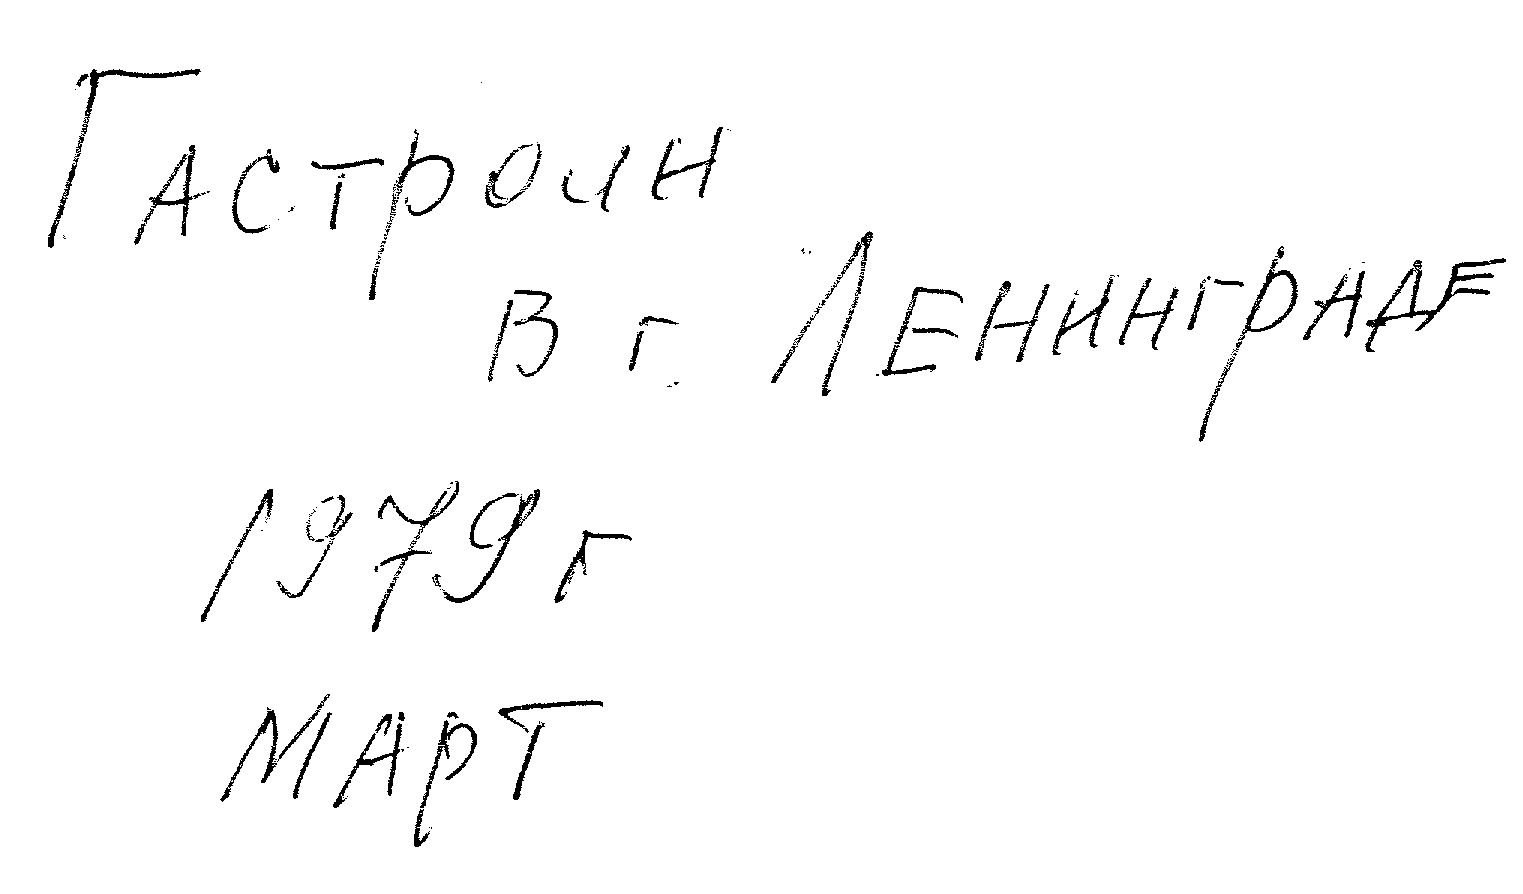 Гастроин
в г. Ленинграде
1979 г
март